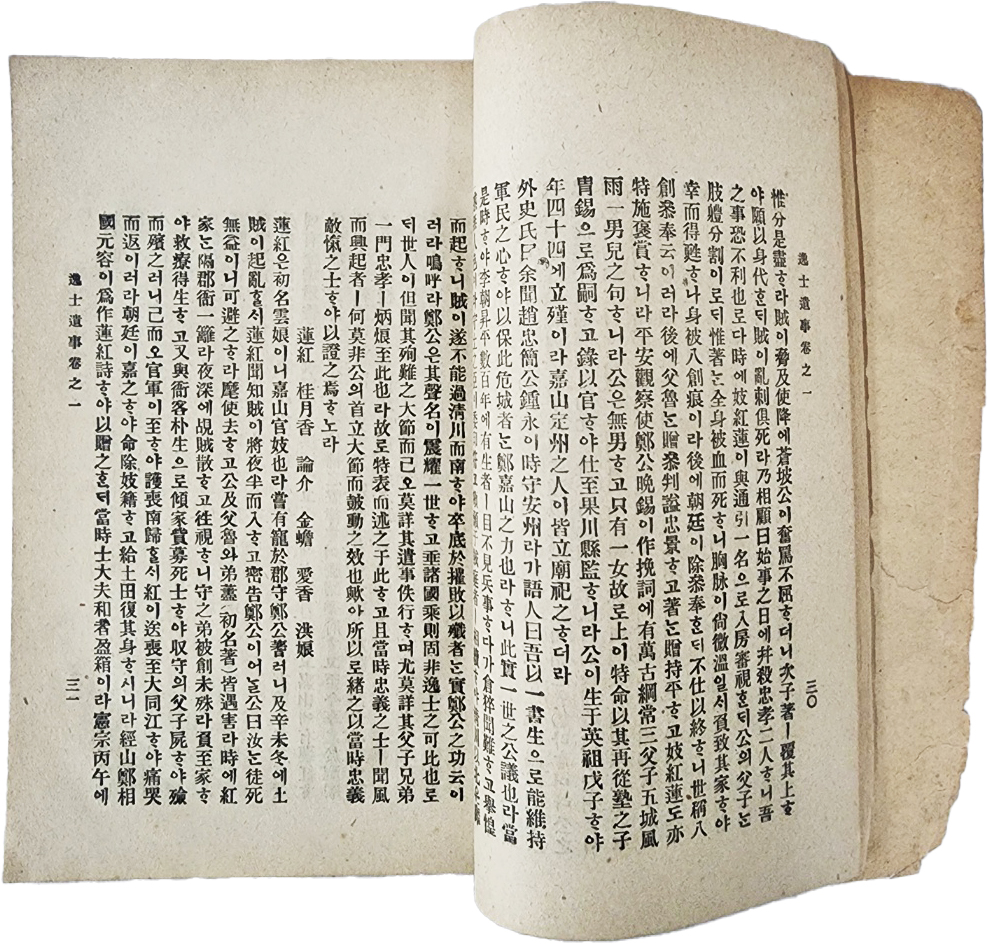 逸士遺事卷之一
三〇
惟分是盡ᄒᆞ라賊이脅及使降에蒼坡公이奮罵不屈ᄒᆞ더니次子著ㅣ覆其上ᄒᆞ
야願以身代ᄒᆞᆫᄃᆡ賊이亂刺俱死라乃相顧曰始事之日에幷殺忠孝二人ᄒᆞ니吾
之事恐不利也로다時에妓紅蓮이與通引一名으로入房審視ᄒᆞᆫᄃᆡ公의父子ᄂᆞᆫ
肢軆分割이로ᄃᆡ惟著ᄂᆞᆫ全身被血而死ᄒᆞ니胸脉이尙微溫일ᄉᆡ負致其家ᄒᆞ야
幸而得甦ᄒᆞ나身被八創痕이라後에朝廷이除叅奉ᄒᆞᆫᄃᆡ不仕以終ᄒᆞ니世稱八
創叅奉云이러라後에父魯ᄂᆞᆫ贈叅判謚忠景ᄒᆞ고著ᄂᆞᆫ贈持平ᄒᆞ고妓紅蓮도亦
特施褒賞ᄒᆞ니라平安觀察使鄭公晩錫이作挽詞에有萬古綱常三父子五城風
雨一男兒之句ᄒᆞ니라公은無男ᄒᆞ고只有一女故로上이特命以其再從塾之子
胄錫으로爲嗣ᄒᆞ고錄以官ᄒᆞ야仕至果川縣監ᄒᆞ니라公이生于英祖戊子ᄒᆞ야
年四十四에立殣이라嘉山定州之人이皆立廟祀之ᄒᆞ더라
外史氏曰余聞趙忠簡公鍾永이時守安州라가語人曰吾以一書生으로能維持
軍民之心ᄒᆞ야以保此危城者ᄂᆞᆫ鄭嘉山之力也라ᄒᆞ니此實一世之公議也라當
是時ᄒᆞ야李朝昇平數百年에有生者ㅣ目不見兵事ᄒᆞ다가倉猝聞難ᄒᆞ고擧惶
而起ᄒᆞ니賊이遂不能過淸川而南ᄒᆞ야卒底於摧敗以殲者ᄂᆞᆫ實鄭公之功云이
러라嗚呼라鄭公은其聲名이震耀一世ᄒᆞ고垂諸國乘則固非逸士之可比也로
ᄃᆡ世人이但聞其殉難之大節而已오莫詳其遺事佚行ᄒᆞ며尤莫詳其父子兄弟
一門忠孝ㅣ炳烺至此也라故로特表而述之于此ᄒᆞ고且當時忠義之士ㅣ聞風
而興起者ㅣ何莫非公의首立大節而皷動之效也歟아所以로緖之以當時忠義
敵愾之士ᄒᆞ야以證之焉ᄒᆞ노라
蓮紅 桂月香 論介 金蟾 愛香 洪娘
蓮紅은初名雲娘이니嘉山官妓也라嘗有寵於郡守鄭公蓍러니及辛未冬에土
賊이起亂ᄒᆞᆯᄉᆡ蓮紅聞知賊이將夜半而入ᄒᆞ고密告鄭公이어ᄂᆞᆯ公曰汝ᄂᆞᆫ徒死
無益이니可避之ᄒᆞ라麾使去ᄒᆞ고公及父魯와弟藎(初名著)皆遇害라時에紅
家ᄂᆞᆫ隔郡衙一籬라夜深에覘賊散ᄒᆞ고徃視ᄒᆞ니守之弟被創未殊라負至家ᄒᆞ
야救療得生ᄒᆞ고又與衙客朴生으로傾家貲募死士ᄒᆞ야收守의父子屍ᄒᆞ야殮
而殯之러니已而오官軍이至ᄒᆞ야護喪南歸ᄒᆞᆯᄉᆡ紅이送喪至大同江ᄒᆞ야痛哭
而返이러라朝廷이嘉之ᄒᆞ야命除妓籍ᄒᆞ고給土田復其身ᄒᆞ시니라經山鄭相
國元容이爲作蓮紅詩ᄒᆞ야以贈之ᄒᆞᆫᄃᆡ當時士大夫和者盈箱이라憲宗丙午에
逸士遺事卷之一
三一